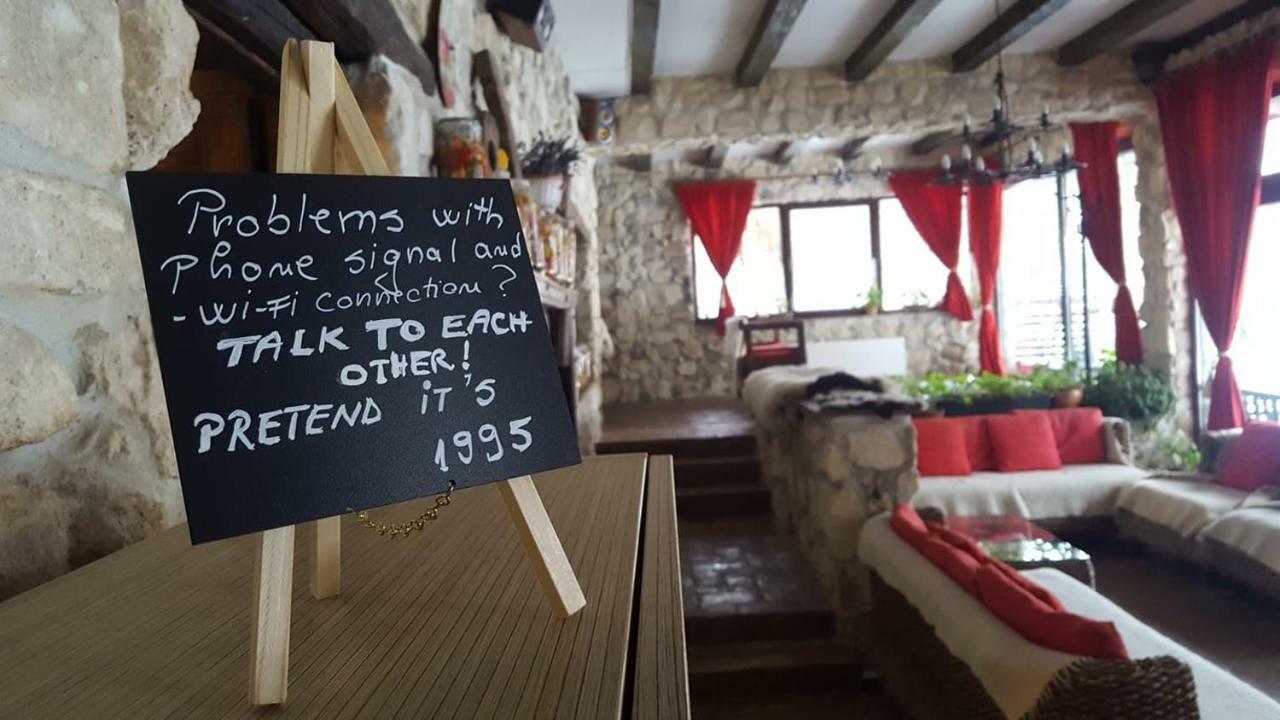 Problems with
Phone signal and
- Wi-Fi connection?
TALK TO EACH
OTHER!
PRETEND iT'S
1995